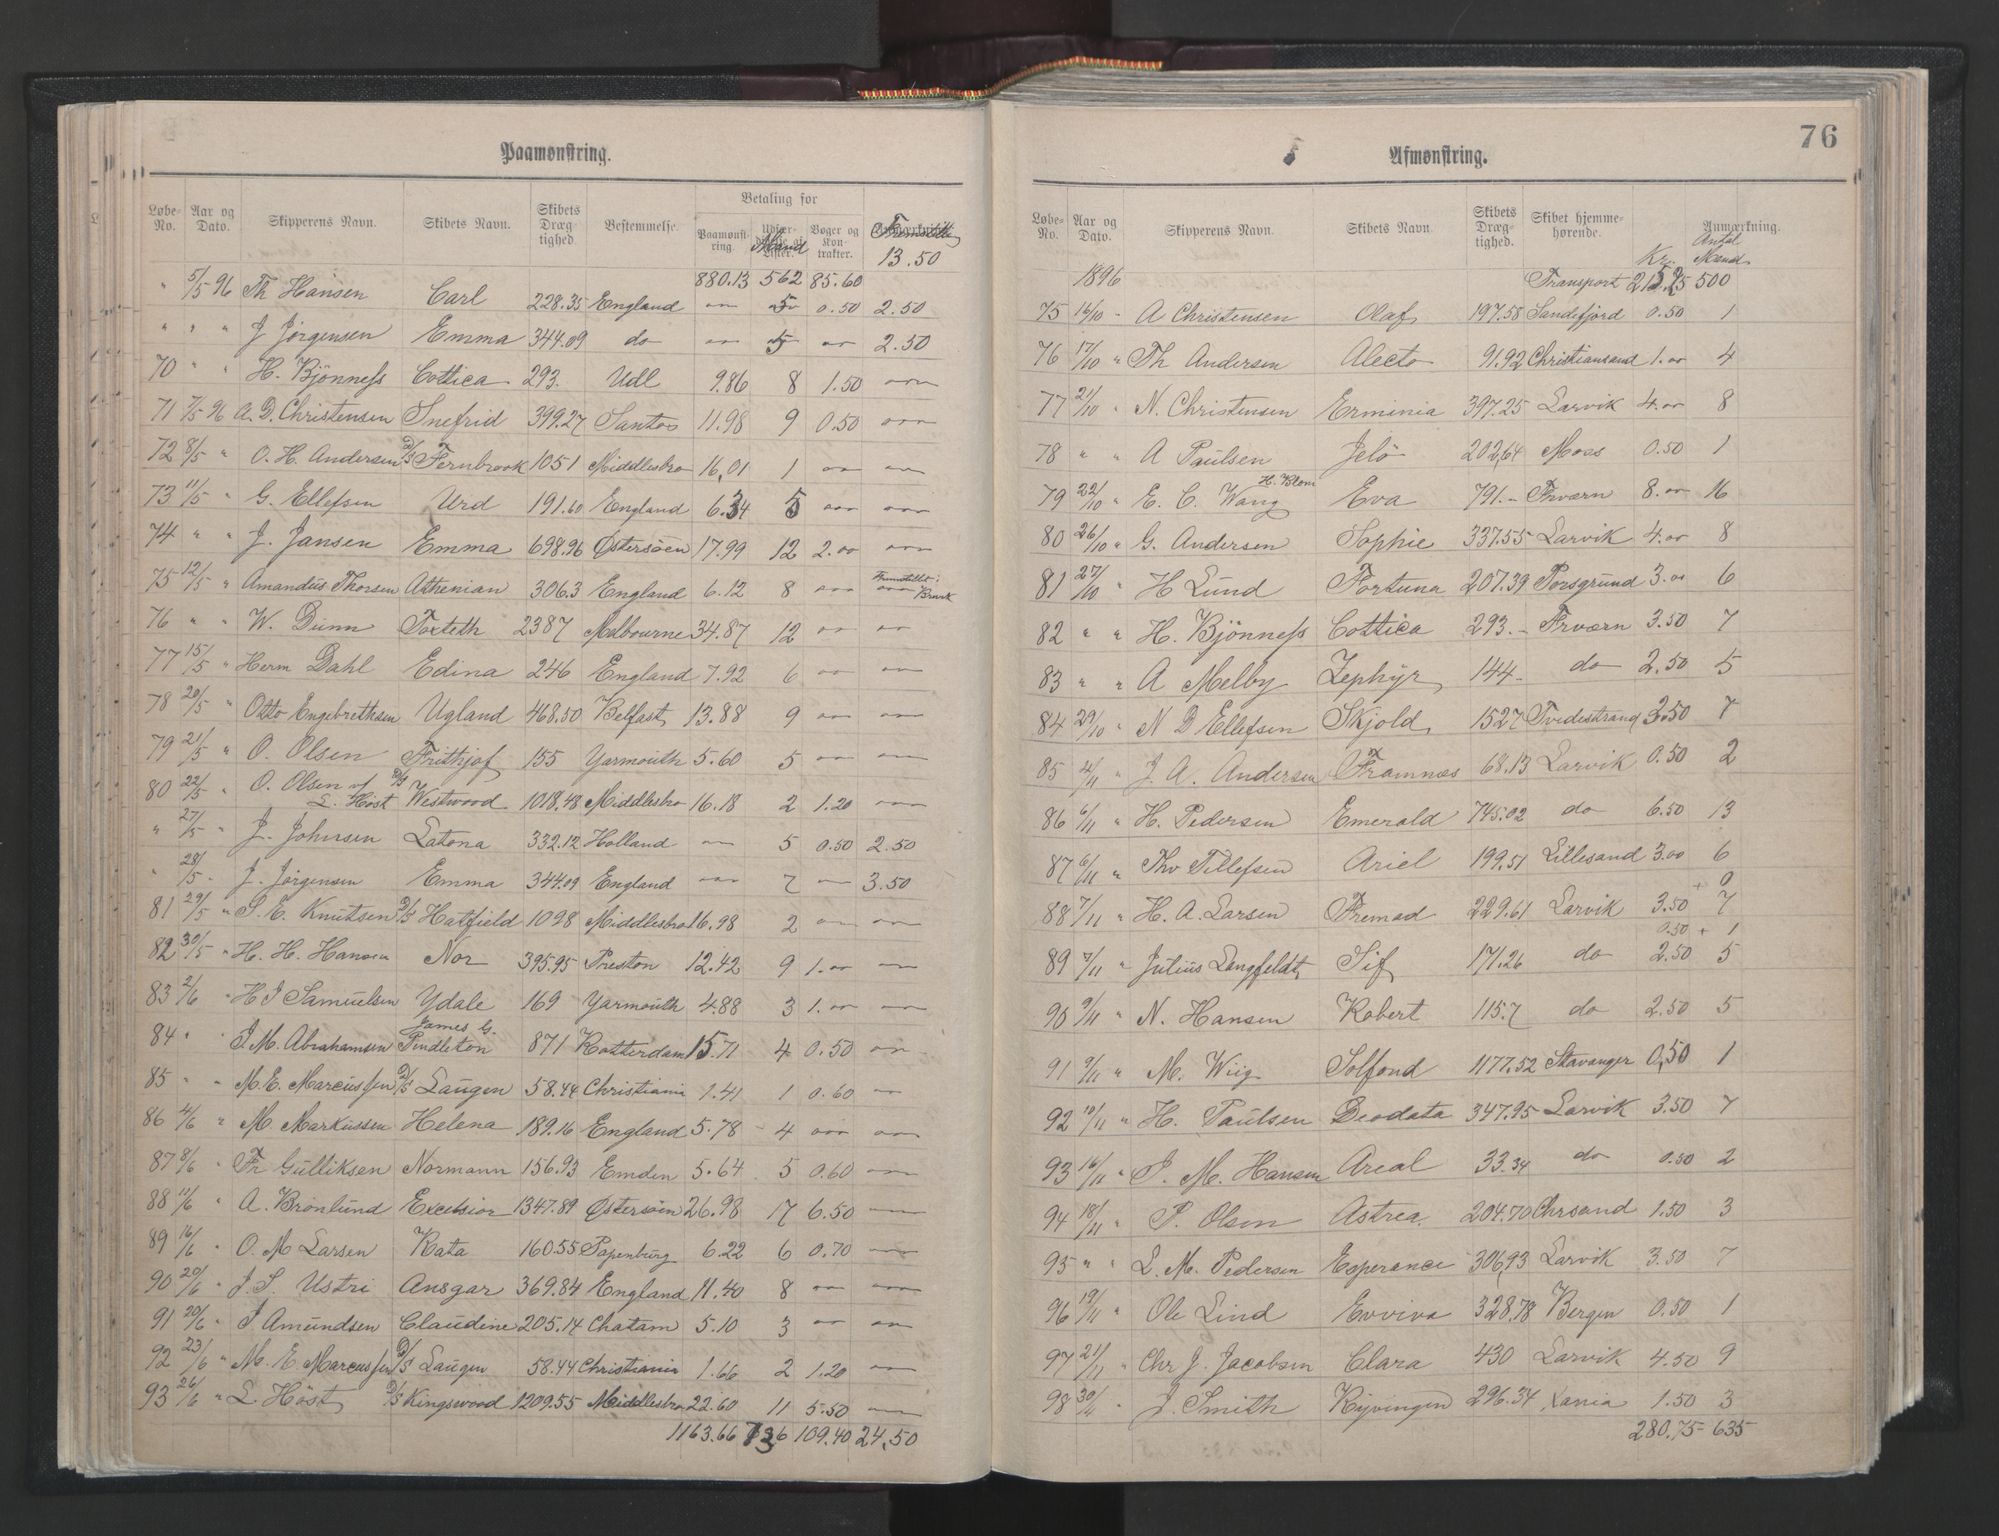 Paamønstring.
Løbe-No. Aar og Dato. Skipperens Navn. Skibets Navn. Skibets Drægtighed Bestemmelse. Betaling for Paamønstring. Mand Bøger og Kontrakter. Fremstille
13.50
880.13 562 85.60
" 5/5 96 Th Hansen Carl 228.35 England " 5 0.50 2.50
" " " J Jörgensen Emma 344.09 do " 5 " 2.50
70 " " H. Bjönness Cottica 293. Udl 9.86 8 1.50 "
71 7/5 96 A. D. Christensen Snefrid 399.27 Santos 11.98 9 0.50 "
72 8/5 " O. H. Andersen D/S Fernbrook 1051 Middlesbro 16.01 1 " "
73 11/5 " G. Ellefsen Urd 191.60 England 6.34 5 " "
74 " " J. Jansen Emma 698.96 Østersöen 17.99 12 2.00 "
75 12/5 " Amandus Thorsen Athenian 306.3 England 6.12 8 " Fremstillet i Brevik
76 " " W. Dunn Toxteth 2387 Melbourne 34.87 12 " "
77 15/5 " Herm Dahl Edina 246 England 7.92 6 " "
78 20/5 " Otto Engebrethsen Ugland 468.50 Belfast 13.88 9 " "
79 21/5 " O. Olsen Frithjof 155 Yarmouth 5.60 5 " "
80 22/5 " O. Olsen v/ L. Höst D/S Westwood 1018.48 Middlesbro 16.18 2 1.20 "
" 27/5 " J. Johnsen Latona 332.12 Holland " 5 0.50 2.50
" 28/5 - J. Jörgensen Emma 344.09 England " 7 " 3.50
81 29/5 " S. E. Knutsen D/S Hatfield 1098 Middlesbro 16.98 2 " "
82 30/5 " H. H. Hansen Nor 395.95 Preston 12.42 9 1.00 "
83 2/6 " H J Samuelsen Ydale 169 Yarmouth 4.88 3 1.00 "
84 " J. M. Abrahamsen James G. Pendleton 871 Rotterdam 15.71 4 0.50 "
85 " " M. E. Marcussen D/S Laugen 58.44 Christiania 1.41 1 0.60 "
86 4/6 " M. Markussen Helena 189.16 England 5.78 - 4 " "
87 8/6 " Fr Gulliksen Normann 156.93 Emden 5.64 5 0.60 "
88 11/6 " A. Bronlund Excelsior 1347.89 Østersöin 26.98 17 6.50 "
89 16/6 " O. M Larsen Kata 160.55 Papenburg 6.22 6 0.70 "
90 20/6 " J. S. Ustri Ansgar 369.84 England 11.40 8 " "
91 20/6 " J Amundsen Claudine 205.14 Chatam 5.10 3 " "
92 23/6 " M. E Marcussen D/S Laugen 58.44 Christiania 1.66 2 1.20 "
93 26/6 " L Höst D/S Kingswood 1209.55 Middlesbro 22.60 11 5.50 "
1163.66 736 109.40 24.50
76
Afmønstring.
Løbe-No. Aar og Dato. Skipperens Navn. Skibets Navn Skibets Drægtighed. Skibet hjemmehørende. Anmærkning.
Kr. Antal Mand
1896 Transport 500
75 16/10 - A Christensen Olaf 197.58 Sandefjord 0.50 1
76 17/10 " Th Andersen Alecto 91.92 Christiansand 1.00 4
77 21/10 " N. Christensen Erminia 397.25 Larvik 4.00 8
78 " " A Paulsen Jelö 202.64 Moss 0.50 1
79 22/10 " E. C. Wang H. Blom Eva 791.- Frværn 8.00 16
80 26/10 " G. Andersen Sophie 337.55 Larvik 4.00 8
81 27/10 " H Lund Fortuna 207.39 Porsgrund 3.00 6
82 " " H. Bjönness Cottica 293.- Frværn 3.50 7
83 " " A Melby Zephyr 144.- do 2.50 5
84 29/10 " N D Ellefsen Skjold 1527 Tvedestrand 3.50 7
85 4/11 " J. A. Andersen Framnæs 68.13 Larvik 0.50 2
86 6/11 " H. Pedersen Emerald 745.02 do 6.50 13
87 6/11 " Thv Tellefsen Ariel 199.51 Lillesand 3.00 6
+ 0
88 7/11 " H. A. Larsen Fremad 229.61 Larvik 3.50 7
0.50 + 1
89 7/11 " Julius Langfeldt Sif 171.26 do 2.50 5
90 9/11 " N. Hansen Robert 115.7 do 2.50 5
91 9/11 " M. Wiig Solfond 1177.52 Stavanger 0.50 1
92 10/11 " H. Paulsen Deodata 347.95 Larvik 3.50 7
93 16/11 " J. M. Hansen Areal 33.34 do 0.50 2
94 18/11 " P. Olsen Astrea 204.70 Chrsand 1.50 3
95 " " L. M. Pedersen Esperance 306.93 Larvik 3.50 7
96 19/11 " Ole Lind Evviva 328.78 Bergen 0.50 1
97 21/11 " Chr J. Jacobsen Clara 430 Larvik 4.50 9
98 30/11 " J. Smith Kyvingen 296.34 1.50 3
280.75 635